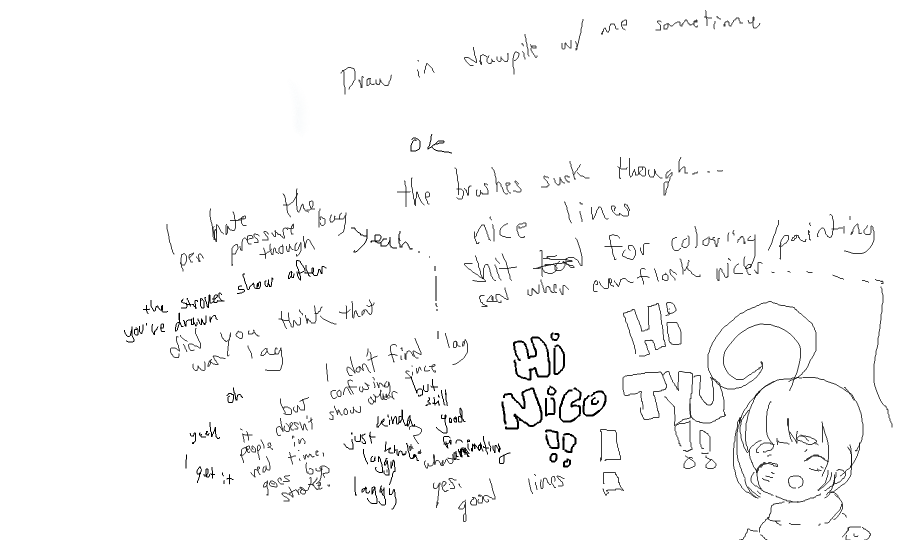 Draw in drawpile w/ me sometime
ok
the brushes suck though...
I hate the
pen pressure bug
though
yeah..
nice lines
shit for coloring/painting
sad when even flock nicer...
the strokes show after
you've drawn
did you think that
was lag
I don't find lag
but confusing since
it doesn't show after but
oh
yeah
people in
real time.
I get it
goes by
stroke.
still
just kinda good
laggy kinda for
when animating
laggy yes.
good lines
Hi
NiCO
!!
Hi
TYU
!!
!